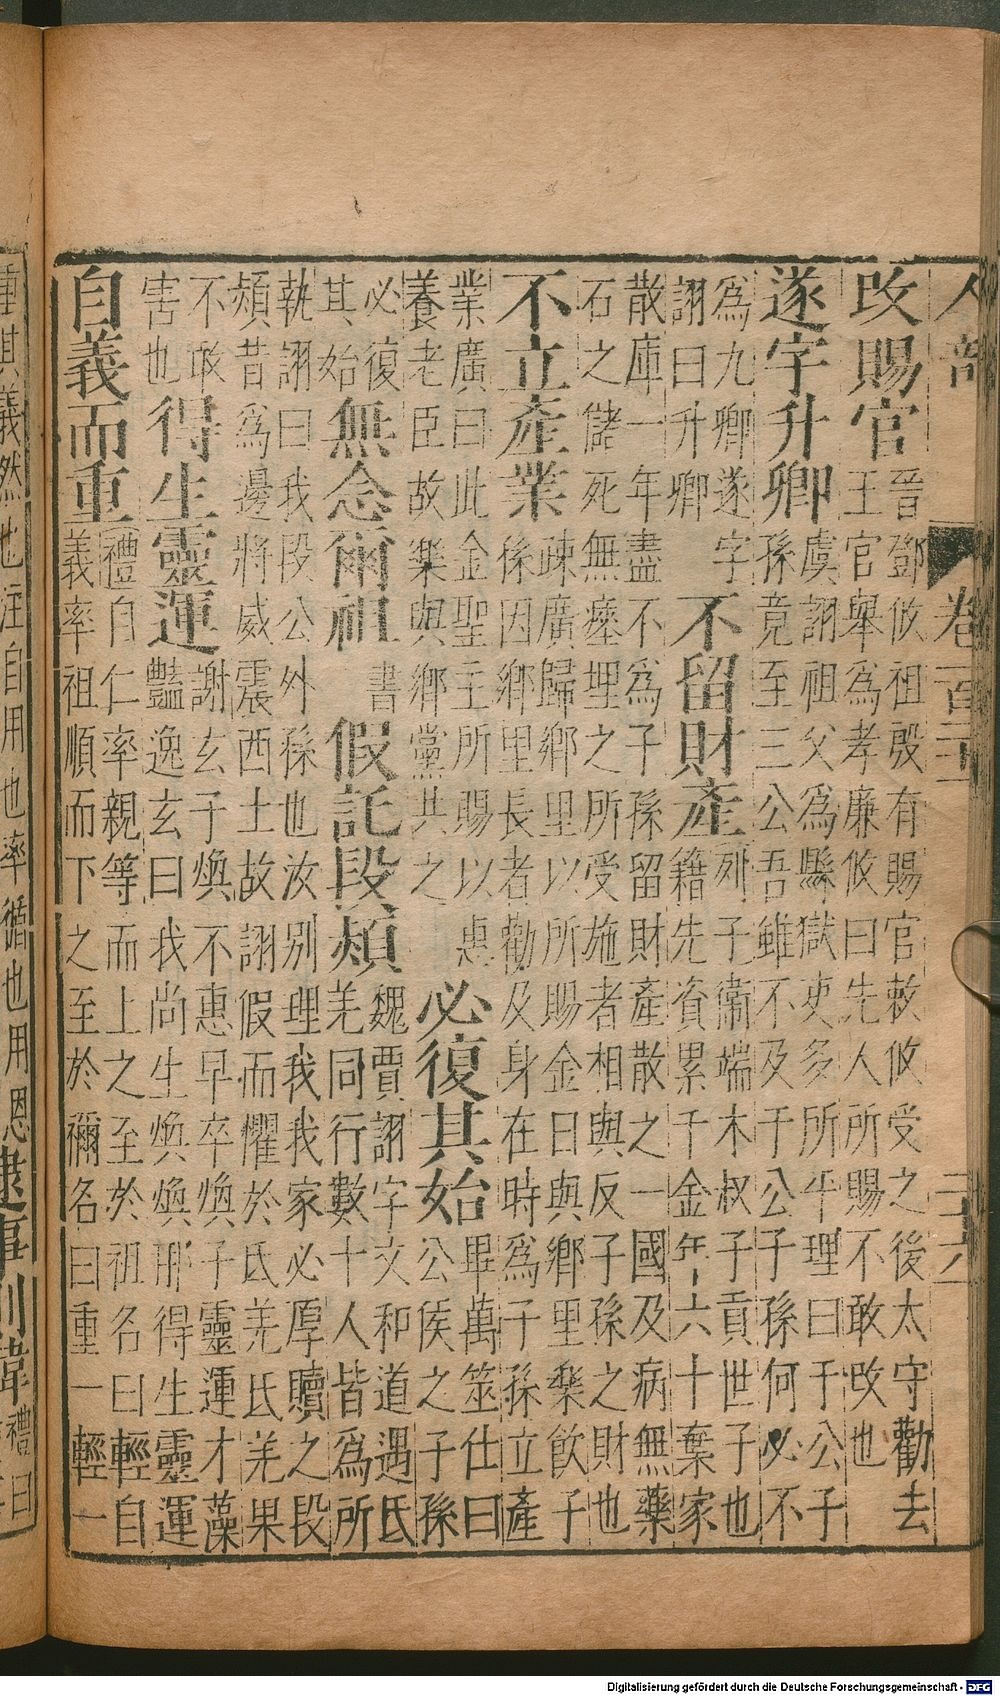 人部
攺賜官 晉鄧攸祖殷有賜官敕攸受之後太守勸去
王官舉為孝廉攸曰先人所賜不敢攺也
遂字升卿 虞詡祖父為縣獄吏多所平理曰于公子
孫竟至三公吾雖不及于公子孫何必不
為九卿遂字
詡曰升卿
不留財產 列子衛端木叔子貢世子也
籍先資累千金年六十棄家
散庫一年盡不為子孫留財產散之一國及病無藥
石之儲死無瘞埋之所受施者相與反子孫之財也
不立產業 疎廣歸鄉里以所賜金日與鄉里樂飲子
孫因鄉里長者勸及身在時為子孫立產
業廣曰此金聖主所賜以惠
養老臣故樂與鄉黨共之
必復其始 畢萬筮仕曰
公侯之子孫
必復
其始
無念爾祖 書
假託段熲 魏賈詡字文和道遇氐
羌同行數十人皆為所
執詡曰我段公外孫也汝別理我我家必厚贖之段
熲昔為邊將威震西土故詡假而懼於氐羌氐羌果
不敢
害也
得生靈運 謝玄子煥不惠早卒煥子靈運才藻
豔逸玄曰我尚生煥煥那得生靈運
自義而重 禮自仁率親等而上之至於祖名曰輕自
義率祖順而下之至於禰名曰重一輕一
重其義然也注自用也率循也用恩
禮曰
Digitalisierung gefördert durch die Deutsche Forschungsgemeinschaft - DFG